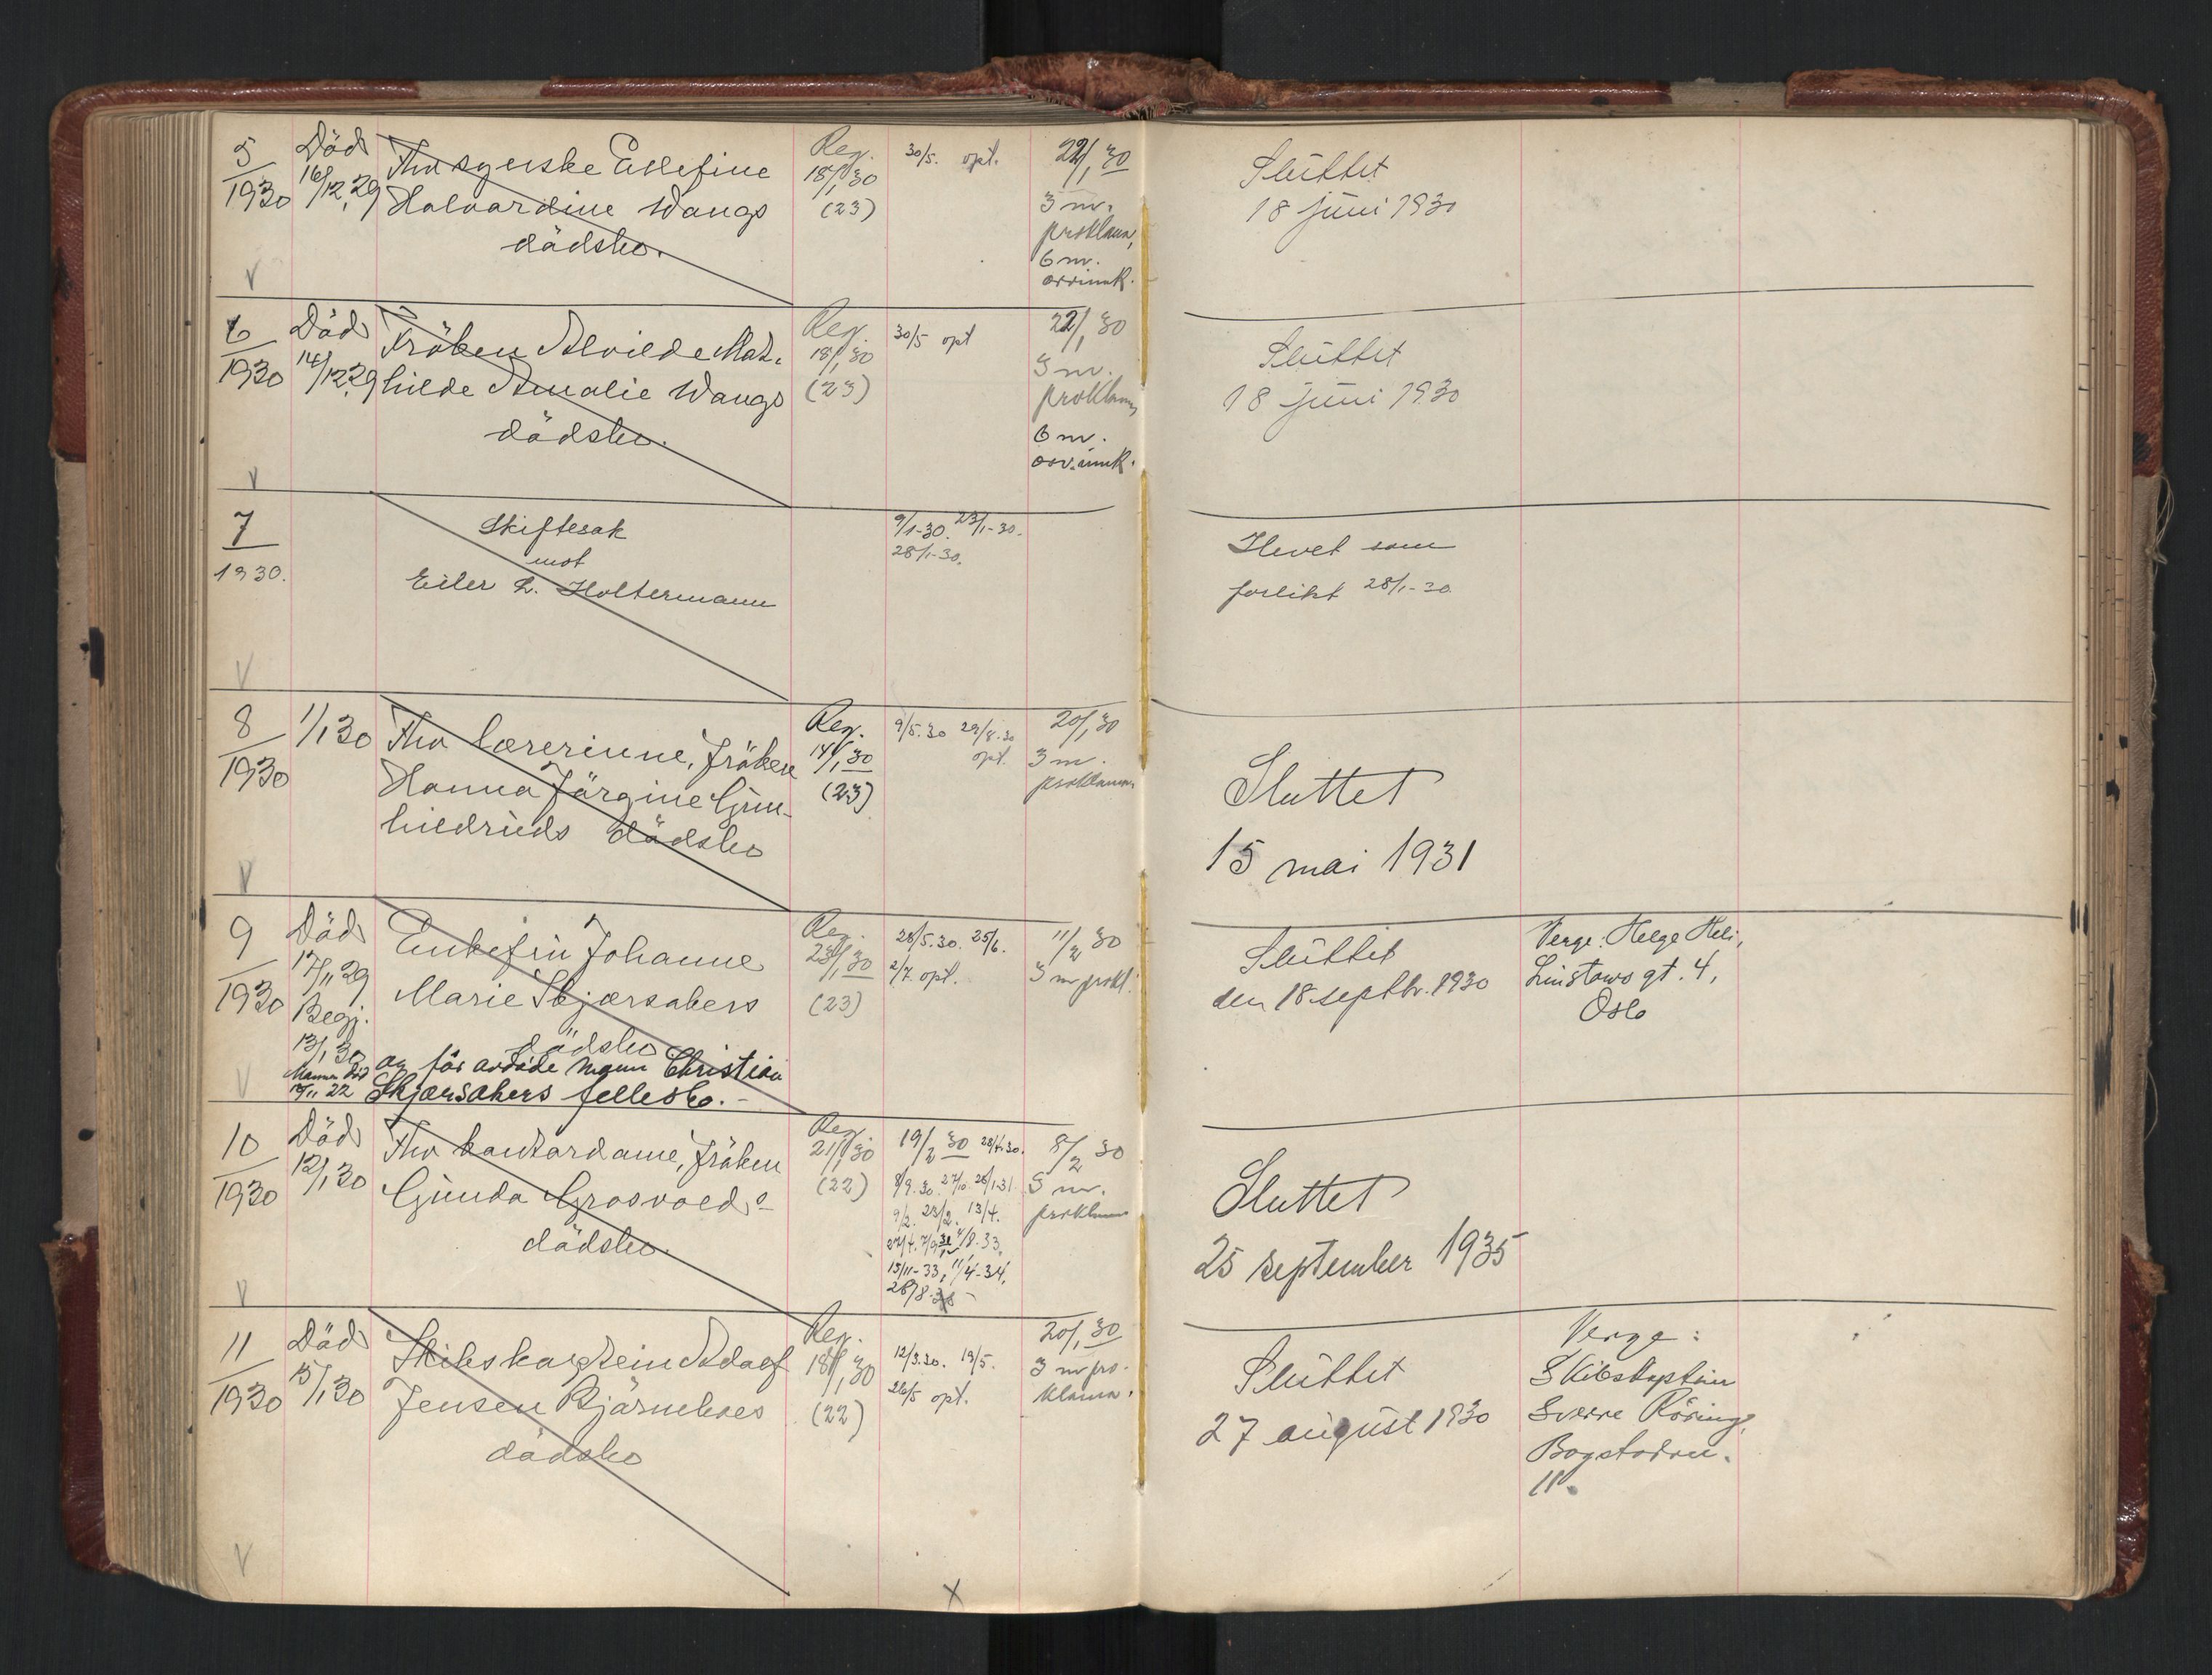 5
1930
Död
16/12.29
Fhv syerske Ellefine
Halvardine Wangs
dödsbo.
Reg.
18/1 30
(23)
30/5. opt.
22/1 30
3 m.
proklama,
6 m.
arvinnk.
Slüttet
18 jüni 1930
V
6
1930
Död
14/12.29
Fröken Alvilde Mat-
hilde Amalie Wangs
dödsbo.
Reg.
18/1 30
(23)
30/5 opt
22/1 30
3 m.
proklama,
6 m.
arv.innk.
Slüttet
18 jüni 1930
V
7
1930.
Skiftesak
mot
Eiler L. Holtermann
9/1-30. 23/1-30.
28/1-30.
Hevet som
forlikt 28/1-30.
V
8
1930
1/1 30
Fhv lærerinne, fröken
Hanna Jörgine Gün-
hildrüds dödsbo
Reg.
14/1 30
(23)
9/5.30 29/8.30
opt.
20/1 30
3 m.
proklama.
Sluttet
15 mai 1931
V
9
1930
Död
17/11 29
Begj.
13/1 30
Mannen död
Enkefrü Johanne
Marie Skjærsakers
dödsbo
og för avdöde mann Christian
22 Skjærsakers fellesbo.-
Reg.
23/1 30
(23)
28/5.30. 25/6.
2/7. opt.
11/2 30
3 m prokl.
Slüttet
den 18 septbr. 1930
Verge: Helge Heli,
Linstows gt. 4,
Oslo
V
10
1930
Död
12/1 30
Fhv kontordame, fröken
Günda Grosvolds
dödsbo.
Reg.
21/1 30
(22)
19/2 30 28/4.30.
8/9.30. 27/10. 26/1-31.
9/2. 23/2. 13/4.
27/4. 7/9 /8.33.
15/11-33, 11/4-34,
26/8.
8/2 30
3 m.
proklama
Sluttet
25 september 1935
V
11
1930
Död
15/1 30
Skibskaptein Adolf
Jensen Bjärneboes
dödsbo
Reg.
18/1 30
(22)
12/3.30. 19/5.
26/5 opt.
20/1 30
3 m pro-
klama.
Slüttet
27 august 1930
Verge:
Skibskaptein
Sverre Röring,
Bogstadvn.
11.
V
X